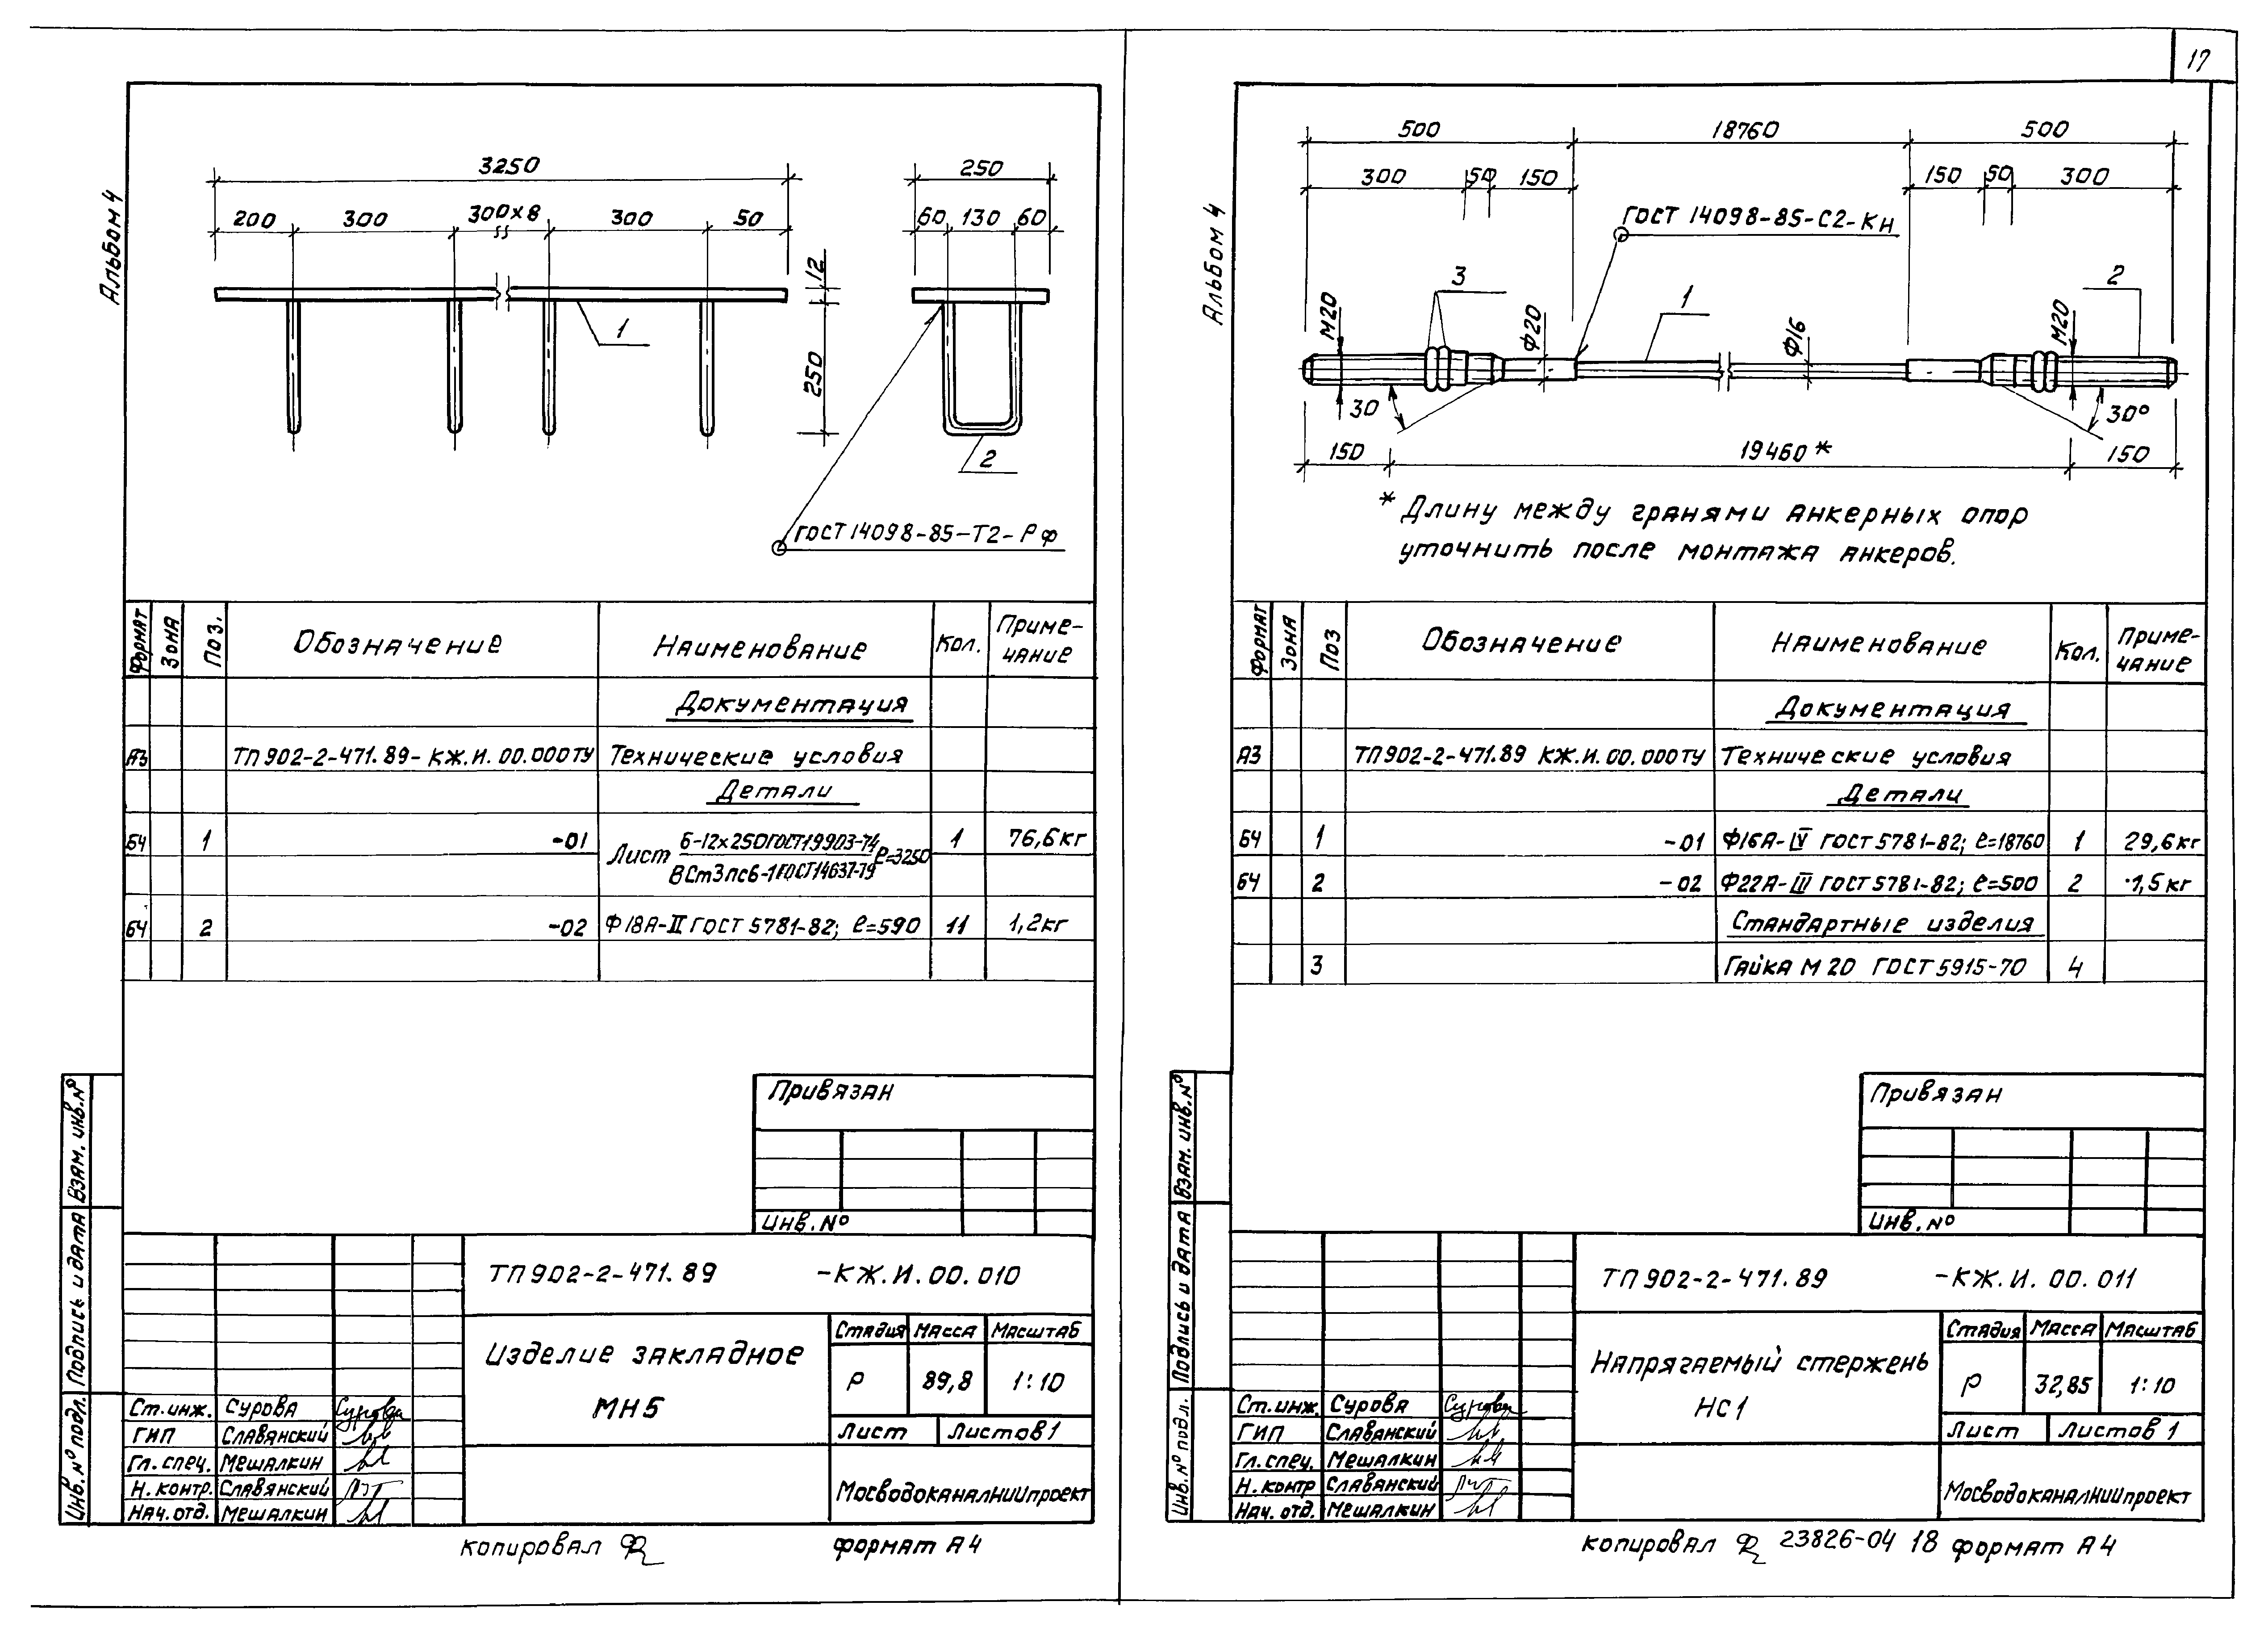 17
Альбом 4
3250
200 300 300×8 300 50
250
60 130 60
12
250
1
2
ГОСТ 14098-85-Т2-Рф
Формат Зона Поз. Обозначение Наименование Кол. Приме-
чание
Документация
А3 ТП 902-2-471.89- КЖ.И.00.000ТУ Технические условия
Детали
БЧ 1 -01 Лист Б-12×250ГОСТ19903-74 ℓ=3250 1 76,6кг
ВСт3пс6-1ГОСТ14637-79
БЧ 2 -02 Ф18А-II ГОСТ 5781-82; ℓ=590 11 1,2кг
Привязан
Инв.№
Взам. инв.№
Подпись и дата
Инв.№ подл.
ТП 902-2-471.89 -КЖ.И.00.010
Изделие закладное
МН5
Стадия Масса Масштаб
Р 89,8 1:10
Лист Листов 1
Мосводоканалниипроект
Ст.инж. Сурова
ГИП Славянский
Гл.спец. Мешалкин
Н.контр. Славянский
Нач.отд. Мешалкин
копировал формат А4
Альбом 4
500 18760 500
300 50 150 150 50 300
ГОСТ 14098-85-С2-Кн
3
1
2
М20
Ф20
Ф16
М20
30
30°
150 19460* 150
* Длину между гранями анкерных опор
уточнить после монтажа анкеров.
Формат Зона Поз Обозначение Наименование Кол. Приме-
чание
Документация
А3 ТП 902-2-471.89 КЖ.И.00.000ТУ Технические условия
Детали
БЧ 1 -01 Ф16А-IV ГОСТ 5781-82; ℓ=18760 1 29,6кг
БЧ 2 -02 Ф22А-III ГОСТ 5781-82; ℓ=500 2 1,5кг
Стандартные изделия
3 Гайка М 20 ГОСТ 5915-70 4
Привязан
Инв.№
Взам. инв.№
Подпись и дата
Инв.№ подл.
ТП 902-2-471.89 -КЖ.И.00.011
Напрягаемый стержень
НС1
Стадия Масса Масштаб
Р 32,85 1:10
Лист Листов 1
Мосводоканалниипроект
Ст.инж. Сурова
ГИП Славянский
Гл.спец. Мешалкин
Н.контр Славянский
Нач.отд. Мешалкин
копировал 23826-04 18 формат А4